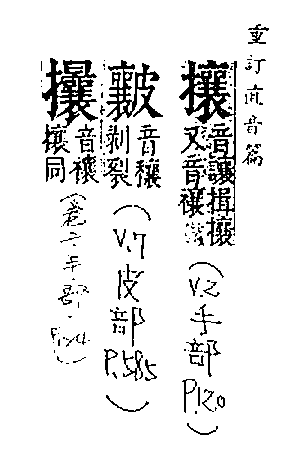 重訂直音篇
攘
音讓揖攘
又音禳
(V.2手部P.120)
音穰
剝裂
(V.7皮部P.585)
音禳
攘同
手部